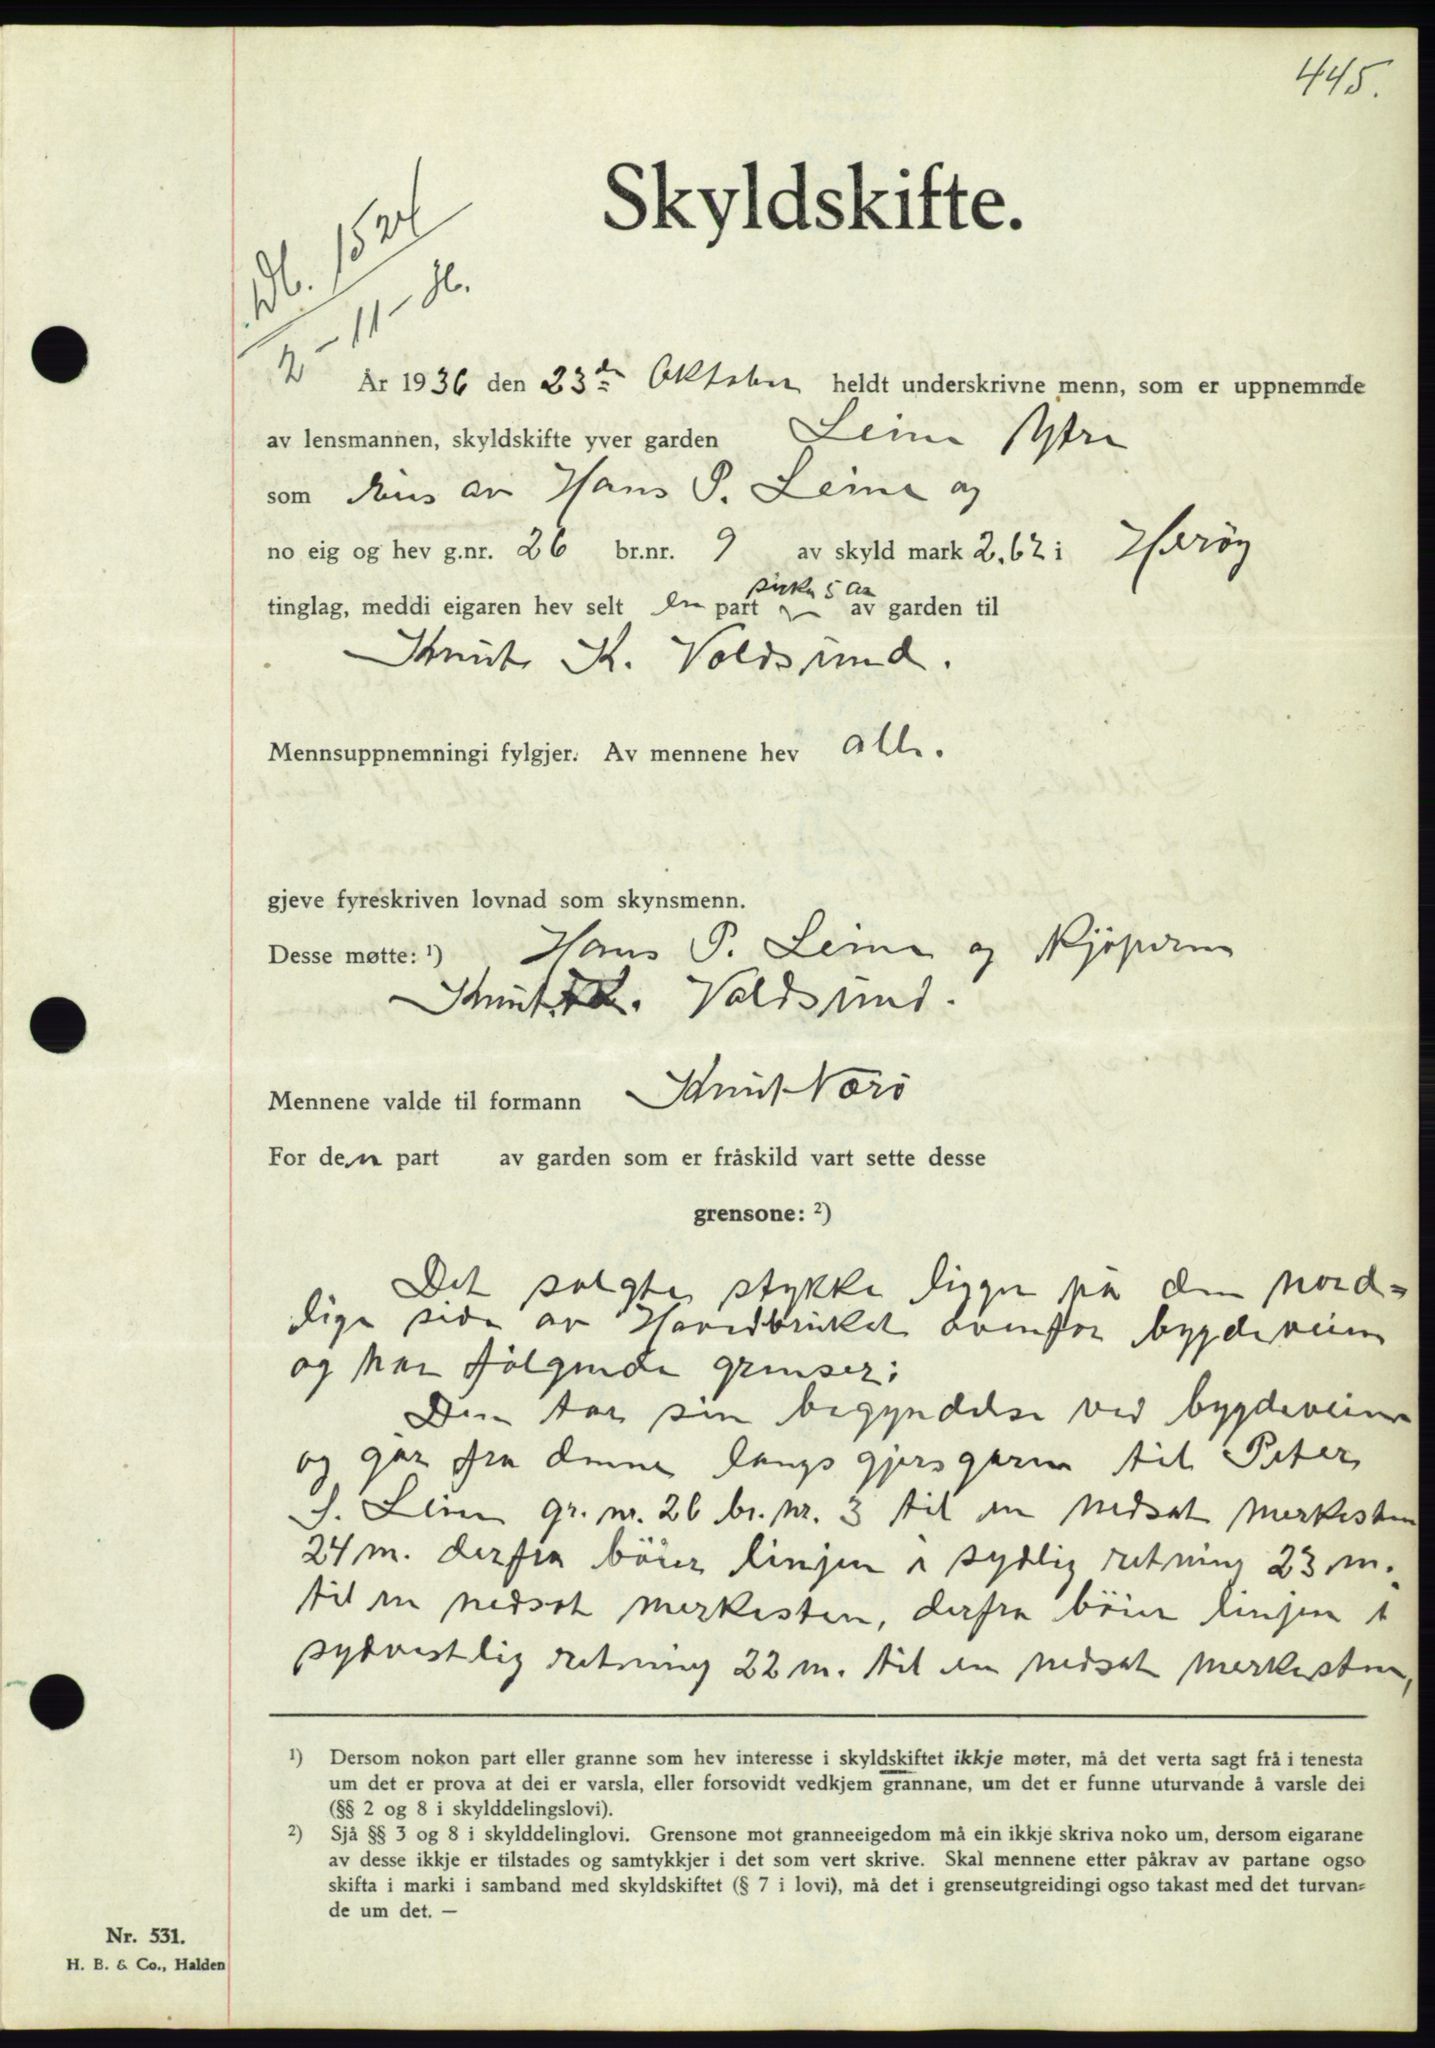 445.
Skyldskifte.
Db. 1524
2-11-36.
År 1936 den 23de Oktober heldt underskrivne menn, som er uppnemnde
av lensmannen, skyldskifte yver garden Leine Ytre
som eies av Hans P. Leine og
no eig og hev g.nr. 26 br.nr. 9 av skyld mark 2,62 i Herøy
sirka 5 ar
tinglag, meddi eigaren hev selt en part av garden til
Knut K. Voldsund.
Mennsuppnemningi fylgjer. Av mennene hev alle.
gjeve fyreskriven lovnad som skynsmenn.
Desse møtte: ¹) Hans P. Leine og kjøperen
Knut K. Voldsund.
Mennene valde til formann Knut Nærö
For den part av garden som er fråskild vart sette desse
grensone: ²)
Det solgte stykke ligger på den nord=
lige side av Hovedbruket ovenfor bygdeveien
og har følgende grenser:
Den tar sin begyndelse ved bygdeveien
og går fra denne langs gjersgaren til Peter
S. Leine gr. nr. 26 br. nr. 3 til en nedsat merkesten
24 m. derfra böier linjen i sydlig retning 23 m.
til en nedsat merkesten, derfra böier linjen i
sydvestlig retning 22 m. til en nedsat merkesten,
¹) Dersom nokon part eller granne som hev interesse i skyldskiftet ikkje møter, må det verta sagt frå i tenesta
um det er prova at dei er varsla, eller forsovidt vedkjem grannane, um det er funne uturvande å varsle dei
(§§ 2 og 8 i skylddelingslovi).
²) Sjå §§ 3 og 8 i skylddelinglovi. Grensone mot granneeigedom må ein ikkje skriva noko um, dersom eigarane
av desse ikkje er tilstades og samtykkjer i det som vert skrive. Skal mennene etter påkrav av partane ogso
skifta i marki i samband med skyldskiftet (§ 7 i lovi), må det i grenseutgreidingi ogso takast med det turvan=
de um det. —
Nr. 531.
H. B. & Co., Halden